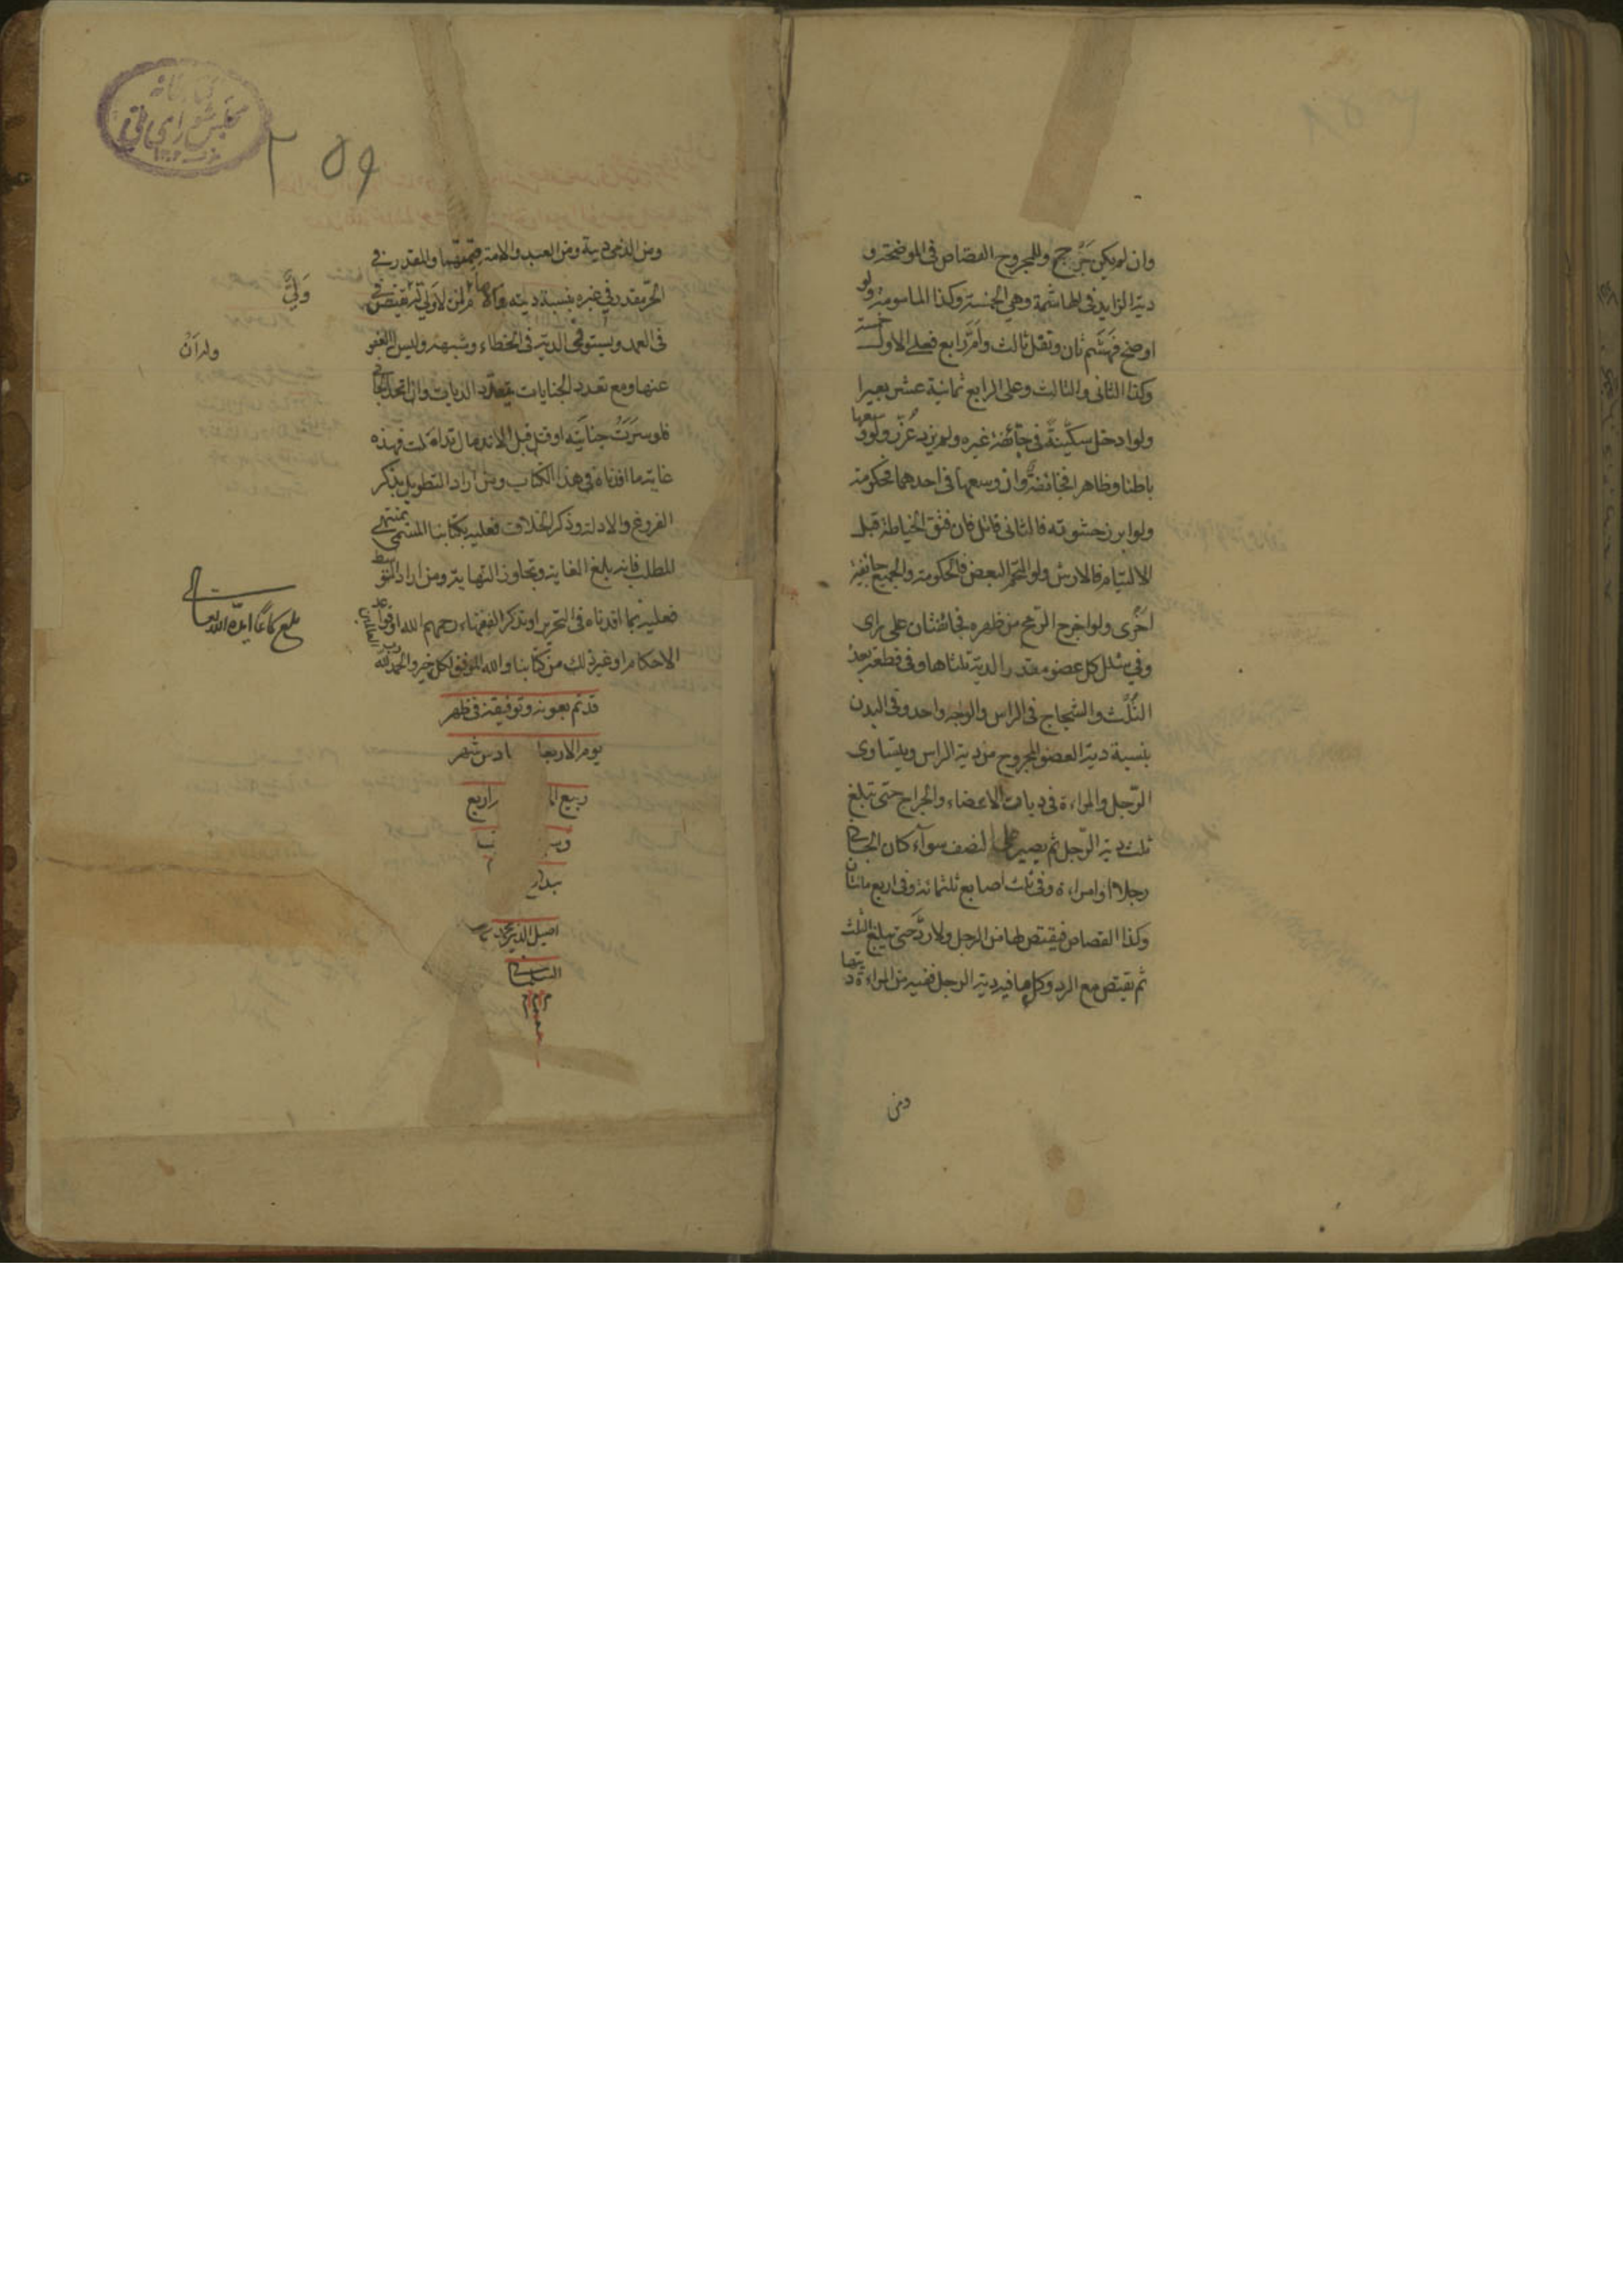 وان لم يكن جرح وللمجروح القصاص في الموضحة و
دية الزايد في الهاشمة وهي الخمسة وكذا المامومة ولو
اوضح فهشم ثان ونقل ثالث وام رابع فعلى الاول خمسة
وكذا الثاني والثالث وعلى الرابع ثمانية عشر بعيرا
ولو ادخل سكينة في جائفة غيره ولم يزد عزر ولو وسعها
باطنا وظاهرا فجائفة وان وسعها في احدهما فحكومة
ولو ابرز حشوته فالثاني قاتل فان فتق الخياطة قبل
الالتيام فالارش ولو التحم البعض فالحكومة والجميع جائفة
اخرى ولو اخرج الرمح من ظهره فجائفتان على راى
وفي شلل كل عضو مقدر الدية ثلثاها وفي قطعه بعد
الثلث والشجاج في الراس والوجه واحد وفي البدن
بنسبة دية العضو المجروح من دية الراس ويتساوى
الرجل والمراءة في ديات الاعضاء والجراح حتى تبلغ
ثلث دية الرجل ثم يصير على النصف سوآء كان الجاني
رجلا او امراءة وفي ثلث اصابع ثلثمائة وفي اربع مائتان
وكذا القصاص فيقتص لها من الرجل ولا رد حتى تبلغ الثلث
ثم تقتص مع الرد وكل ما فيه دية الرجل ففيه من المراءة ديتها
ومن
مجلس شوراى ملى
٢٥٩
ومن الذمي دية ومن العبد والامة قيمتهما والمقدر في
الحر مقدر في غيره بنسبة ديته والامام ولي من لا ولي له يقتص
في العمد ويستوفى الدية في الخطاء وشبهه وليس له العفو
عنها ومع تعدد الجنايات يتعدد الديات وان اتحد الجاني
فلو سرت جنايته او قتل قبل الاندمال تداخلت فهذه
غاية ما افدناه في هذا الكتاب ومن اراد التطويل بذكر
الفروع والادلة وذكر الخلاف فعليه بكتابنا المسمى بمنتهى
المطلب فانه بلغ الغاية وتجاوز النهاية ومن اراد التوسط
فعليه بما افدناه في التحرير او تذكر الفقهاء رحمهم الله او قواعد
الاحكام او غير ذلك من كتابنا والله الموفق لكل خير والحمد لله رب العالمين
ولي
بلغ سماعا ايده الله تعا
قد تم بعونه وتوفيقه في ظهر
يوم الاربعا ادس شهر
ربيع ا
اصيل الدين محمد